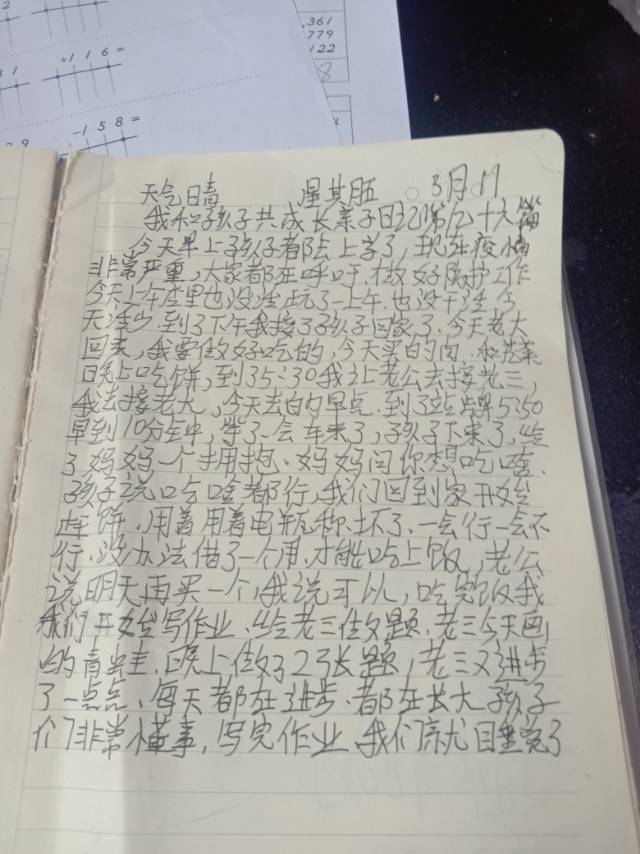 +116=
-158=
,361
779
122
8
天气日青 星其五 3月17
我和孩子共成长亲子日记第 十六篇
今天早上孩子都去上学了,现在疫情
非常严重,大家都在呼吁,做好防护工作
今天上午店里也没活玩了一上午,也没干活今
天活少,到了下午我接了孩子回家了,今天老大
回来,我要做好吃的,今天买的肉,和菜
晚上吃饼,到35:30我让老公去接老三,
我去接老大,今天去的早点,到了站牌5:50
早到10分钟,等了一会车来了,孩子下来了,给
了妈妈一个拥抱、妈妈问你想吃啥、
孩子说吃啥都行,我们回到家开始
饼,用着用着电瓶称坏了,一会行一会不
行,没办法借了一个用,才能吃上饭,老公
说明天再买一个,我说可以,吃完饭我
我们开始写作业、给老三做题,老三今天画
的青蛙,晚上做了2张题,老三又进步
了一点点,每天都在进步、都在长大孩子
们非常懂事,写完作业,我们就目垂觉了